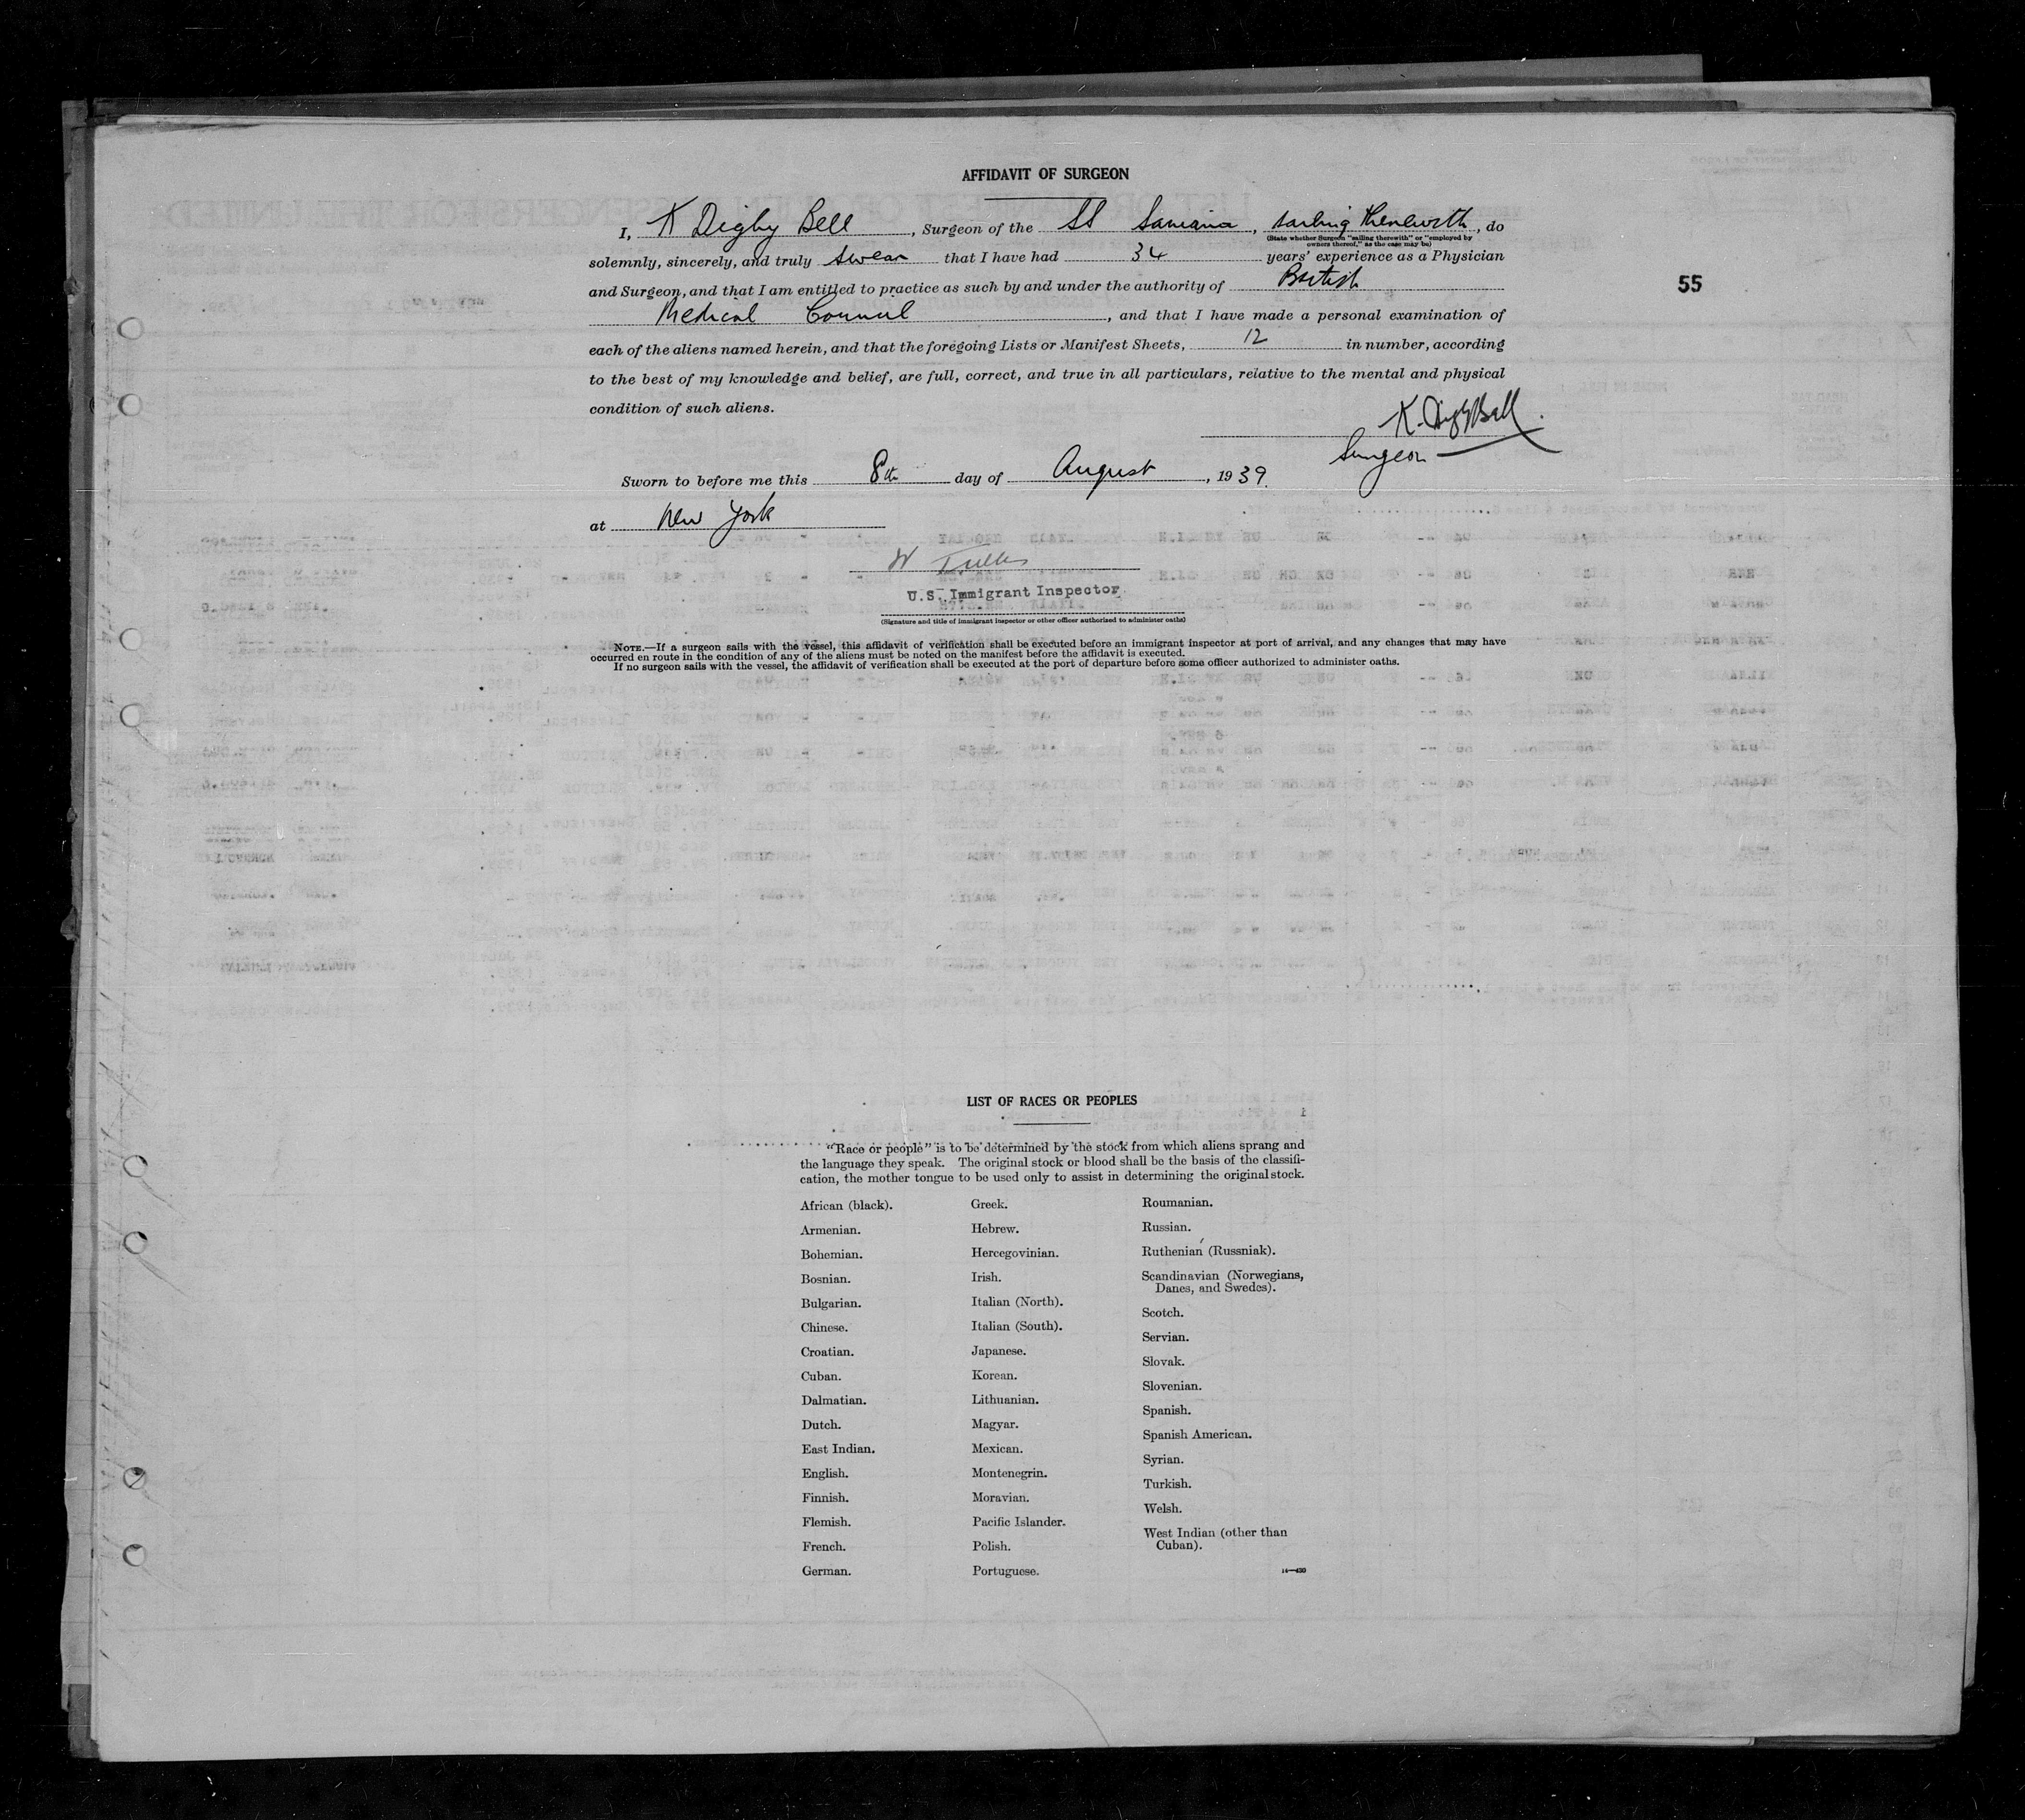 AFFIDAVIT OF SURGEON
I, K Digby Bell, Surgeon of the SS Samaria, sailing therewith, do
(State whether Surgeon "sailing therewith" or "employed by
owners thereof," as the case may be)
solemnly, sincerely, and truly swear that I have had 34 years' experience as a Physician
and Surgeon, and that I am entitled to practice as such by and under the authority of British
55
Medical Council, and that I have made a personal examination of
each of the aliens named herein, and that the foregoing Lists or Manifest Sheets, 12 in number, according
to the best of my knowledge and belief, are full, correct, and true in all particulars, relative to the mental and physical
condition of such aliens.
K. Digby Bell
Surgeon
Sworn to before me this 8th day of August, 1939.
at New York
W
U.S. Immigrant Inspector
(Signature and title of immigrant inspector or other officer authorized to administer oaths)
NOTE.—If a surgeon sails with the vessel, this affidavit of verification shall be executed before an immigrant inspector at port of arrival, and any changes that may have
occurred en route in the condition of any of the aliens must be noted on the manifest before the affidavit is executed.
If no surgeon sails with the vessel, the affidavit of verification shall be executed at the port of departure before some officer authorized to administer oaths.
LIST OF RACES OR PEOPLES
"Race or people" is to be determined by the stock from which aliens sprang and
the language they speak. The original stock or blood shall be the basis of the classifi-
cation, the mother tongue to be used only to assist in determining the original stock.
African (black).
Armenian.
Bohemian.
Bosnian.
Bulgarian.
Chinese.
Croatian.
Cuban.
Dalmatian.
Dutch.
East Indian.
English.
Finnish.
Flemish.
French.
German.
Greek.
Hebrew.
Hercegovinian.
Irish.
Italian (North).
Italian (South).
Japanese.
Korean.
Lithuanian.
Magyar.
Mexican.
Montenegrin.
Moravian.
Pacific Islander.
Polish.
Portuguese.
Roumanian.
Russian.
Ruthenian (Russniak).
Scandinavian (Norwegians,
Danes, and Swedes).
Scotch.
Servian.
Slovak.
Slovenian.
Spanish.
Spanish American.
Syrian.
Turkish.
Welsh.
West Indian (other than
Cuban).
14—430